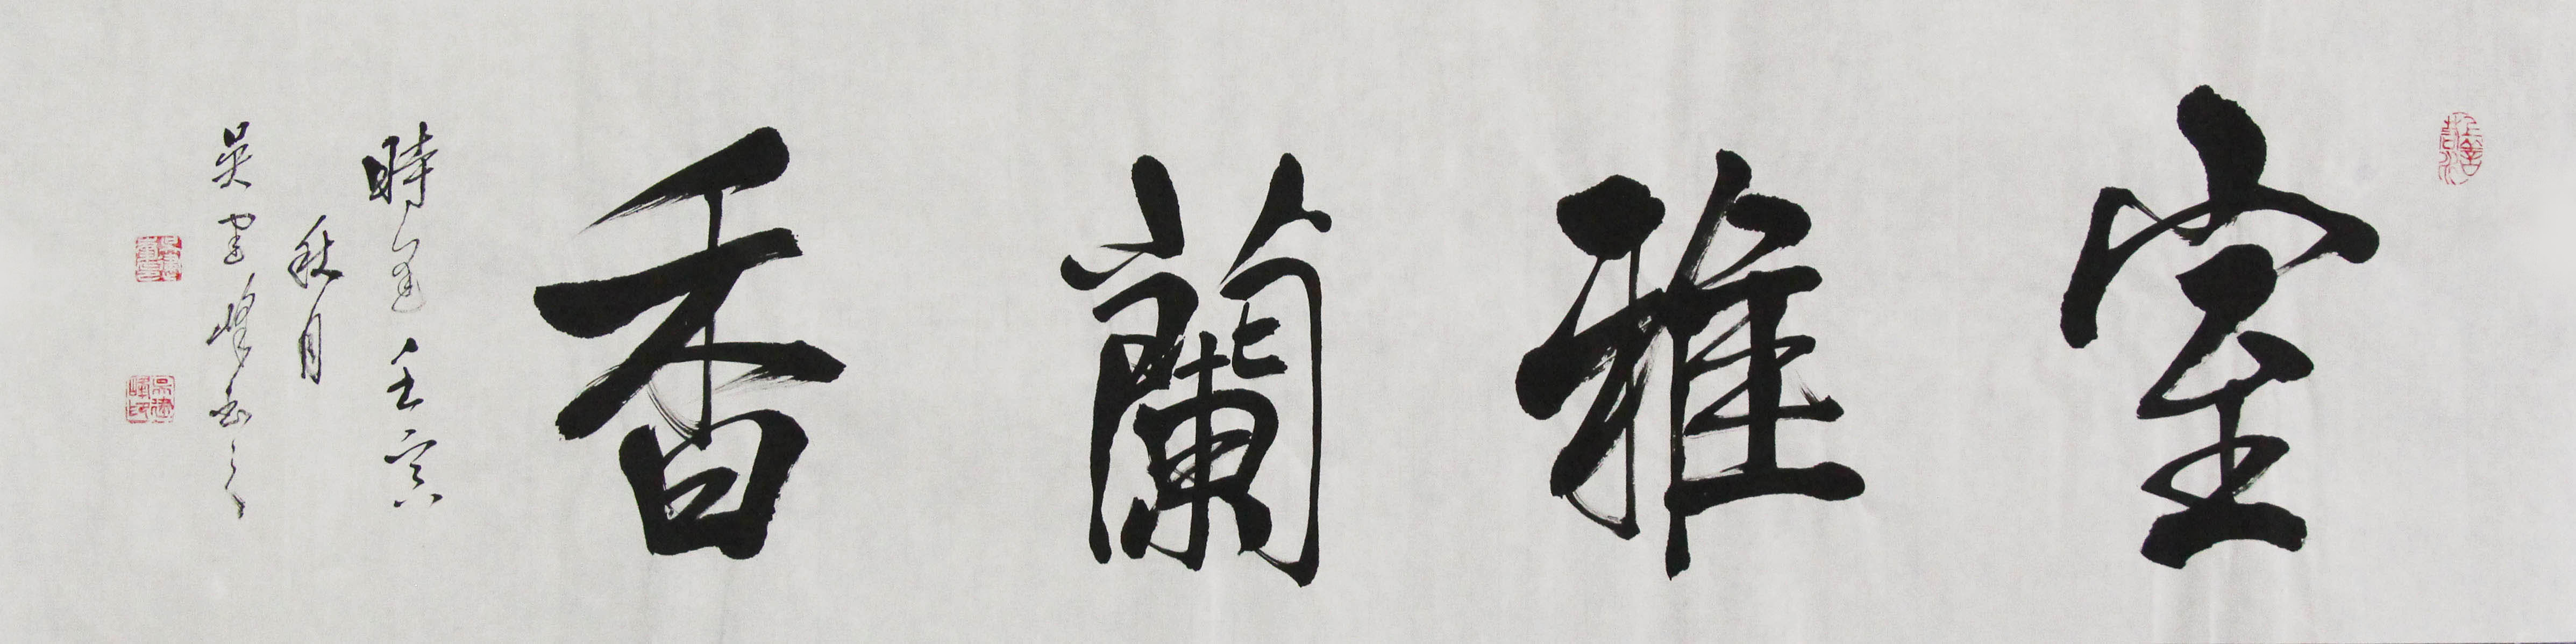 室雅蘭香
時在壬寅
秋月
吴建峰书之